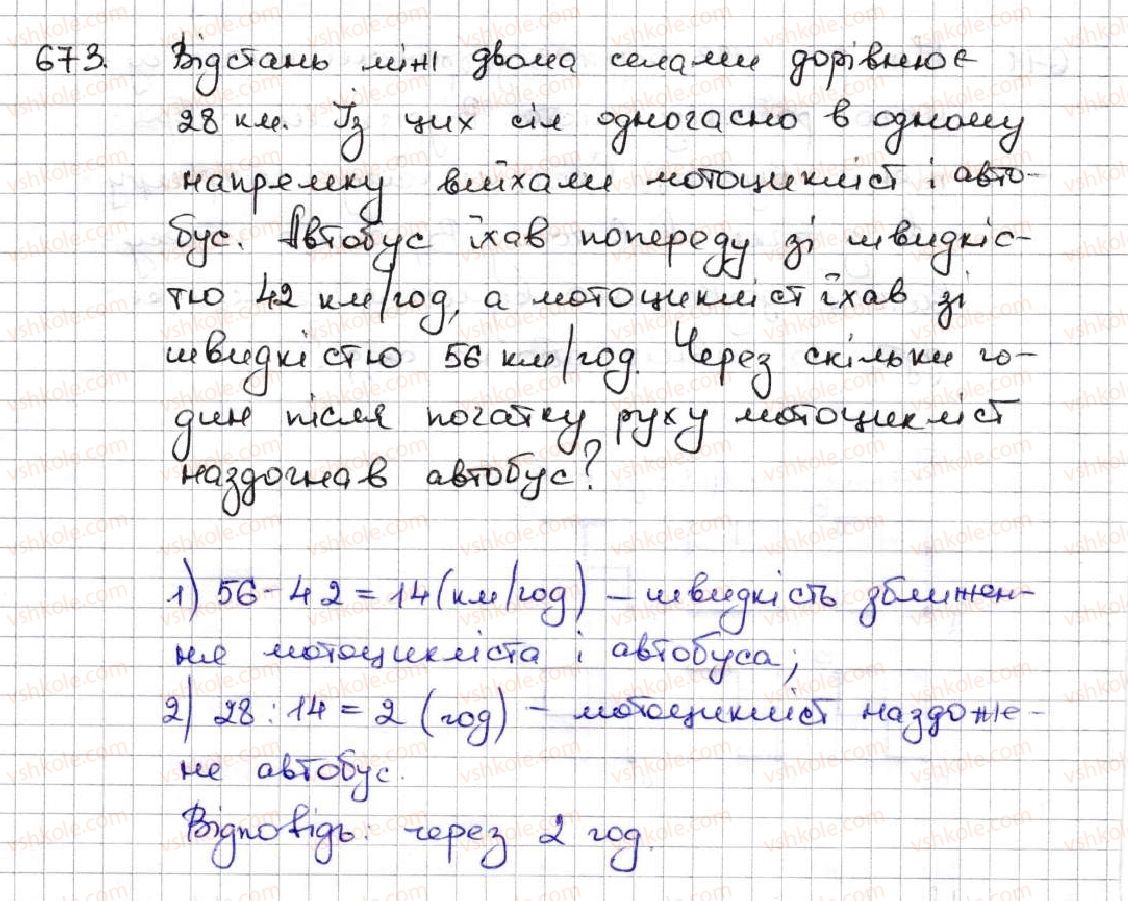 673. Відстань міні двома селами дорівнює
28 км. Із цих сіл одночасно в одному
напрямку виїхали мотоцикліст і авто-
бус. Автобус їхав попереду зі швидкіс-
тю 42 км/год, а мотоцикліст їхав зі
швидкістю 56 км/год. Через скільки го-
дин після початку руху мотоцикліст
наздогнав автобус?
1) 56-42=14(км/год) – швидкість зближен-
ня мотоцикліста і автобуса;
2) 28:14=2 (год) – мотоцикліст наздоже-
не автобус.
Відповідь: через 2 год.